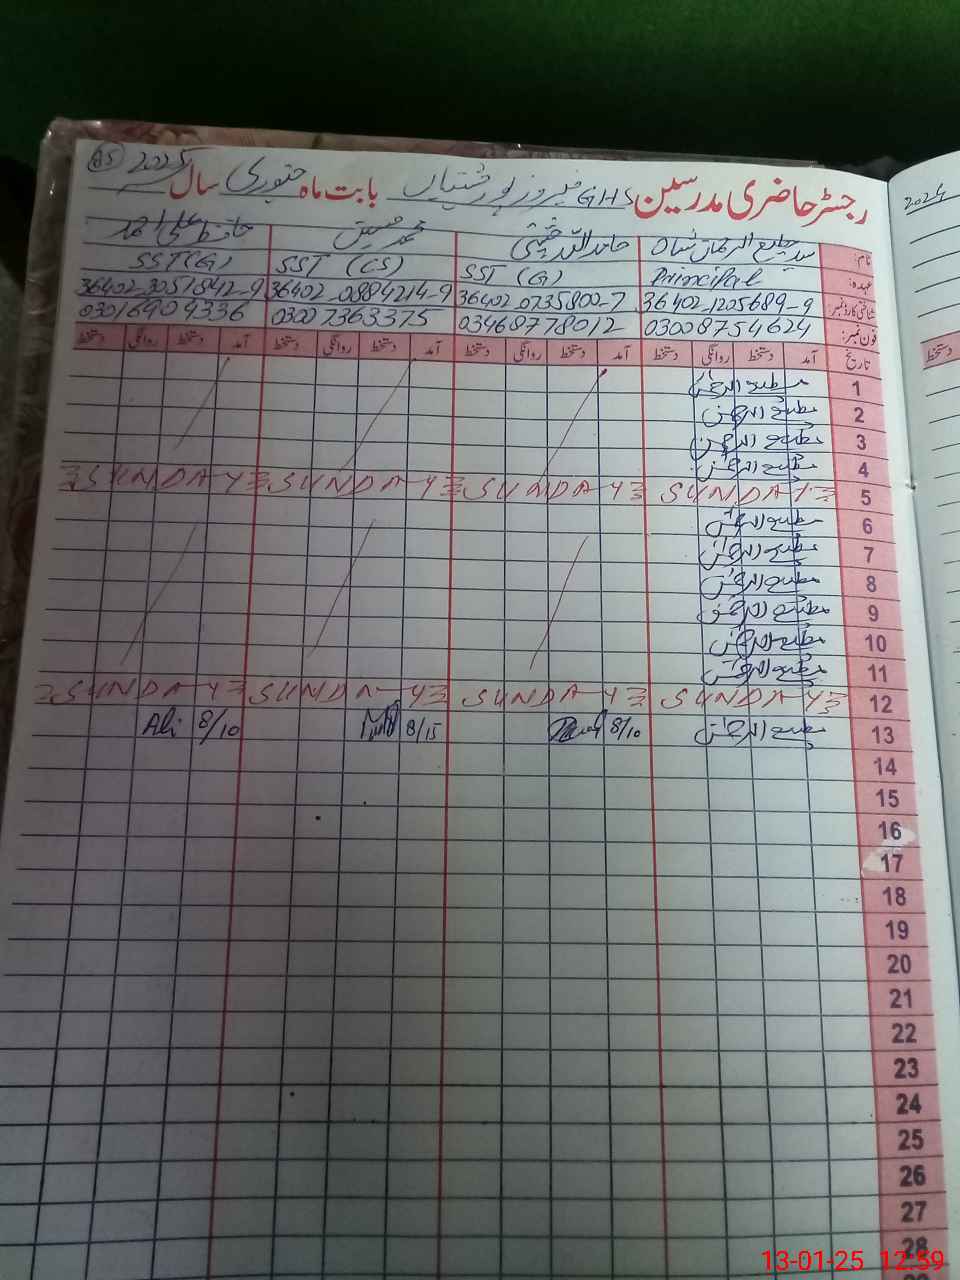 رجسٹر حاضری مدرسین GHS فیروز پور چشتیاں بابت ماہ جنوری سال 2025
2024
نام: سید مطیع الرحمان شاہ حامد اللہ چشتی محمد حسین حافظ علی احمد
عہدہ: Principal SST (G) SST (CS) SST (G)
شناختی کارڈ نمبر: 36402-1205689-9 36402-0735800-7 36402-0884214-9 36402-3051842-9
فون نمبر: 03008754624 03468778012 03007363375 03016904336
تاریخ آمد دستخط روانگی دستخط آمد دستخط روانگی دستخط آمد دستخط روانگی دستخط آمد دستخط روانگی دستخط
دستخط
1 مطیع الرحمٰن
2 مطیع الرحمٰن
3 مطیع الرحمٰن
4 مطیع الرحمٰن
5 SUNDAY SUNDAY SUNDAY SUNDAY
6 مطیع الرحمٰن
7 مطیع الرحمٰن
8 مطیع الرحمٰن
9 مطیع الرحمٰن
10 مطیع الرحمٰن
11 مطیع الرحمٰن
12 SUNDAY SUNDAY SUNDAY SUNDAY
13 مطیع الرحمٰن 8/10 8/15 8/10 Ali
14
15
16
17
18
19
20
21
22
23
24
25
26
27
28
13-01-25 12:59